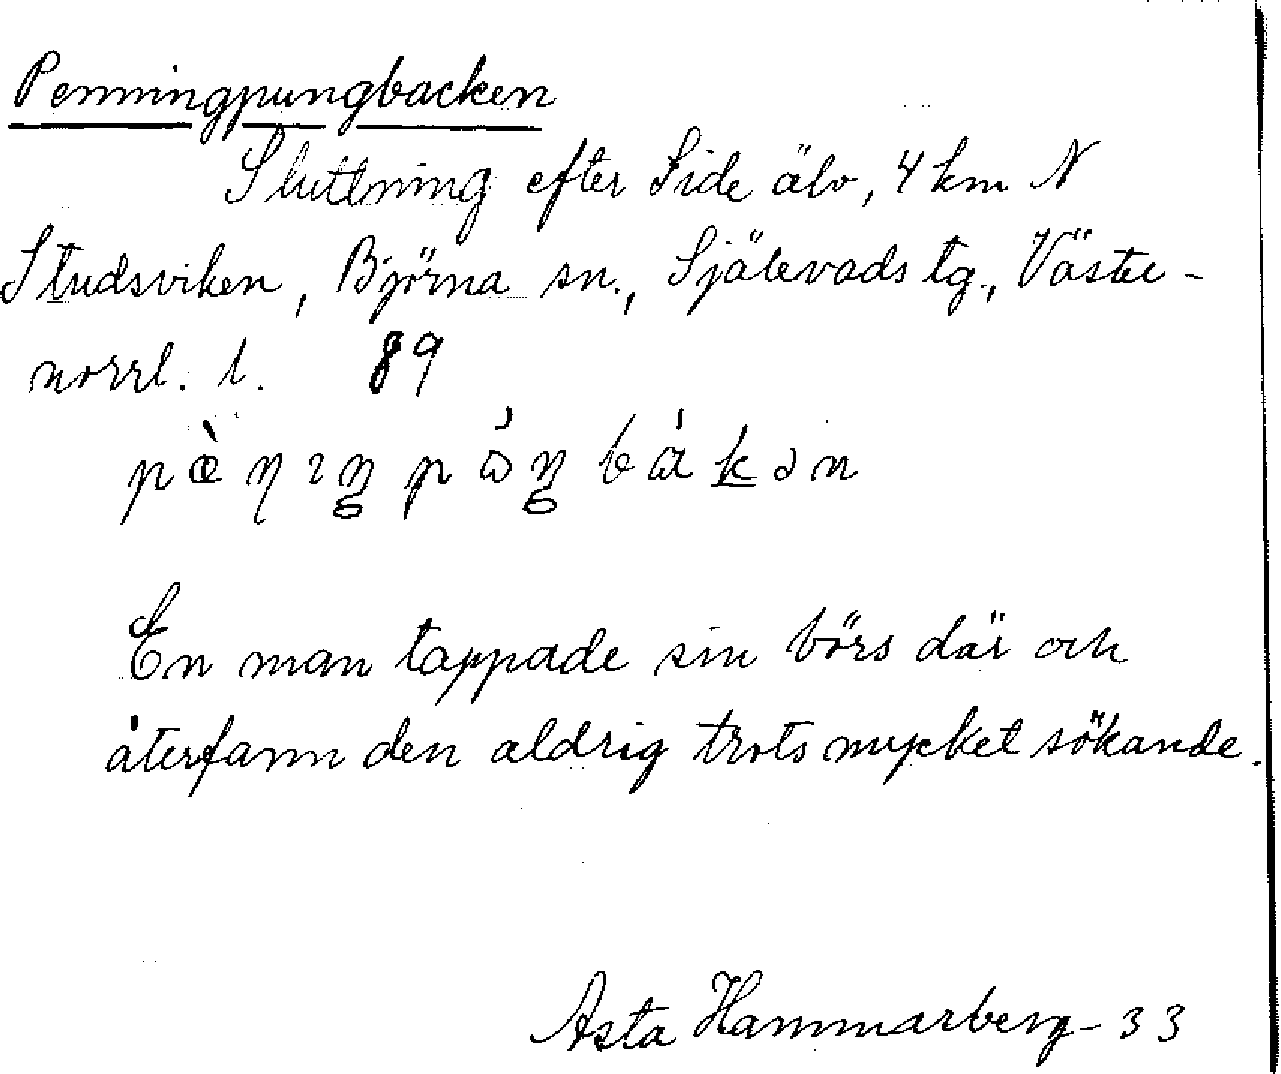 Penningpungbacken
Sluttning efter Side älv, 4 km N
Studsviken, Björna sn., Själevads tg., Väster-
norrl. l. 89
En man tappade sin börs där och
återfann den aldrig trots mycket sökande.
Asta Hammarberg - 33